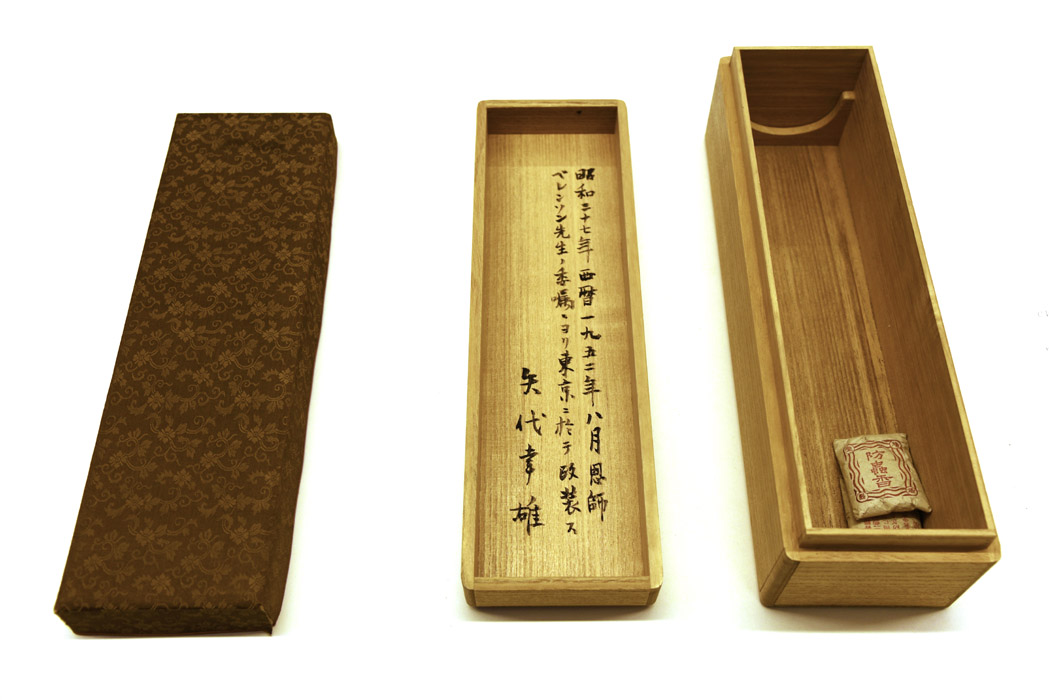 昭和二十七年西暦一九五二年八月恩師
ベレンソン先生ノ委嘱ニヨリ東京ニ於テ改装ス
矢代幸雄
防蟲香